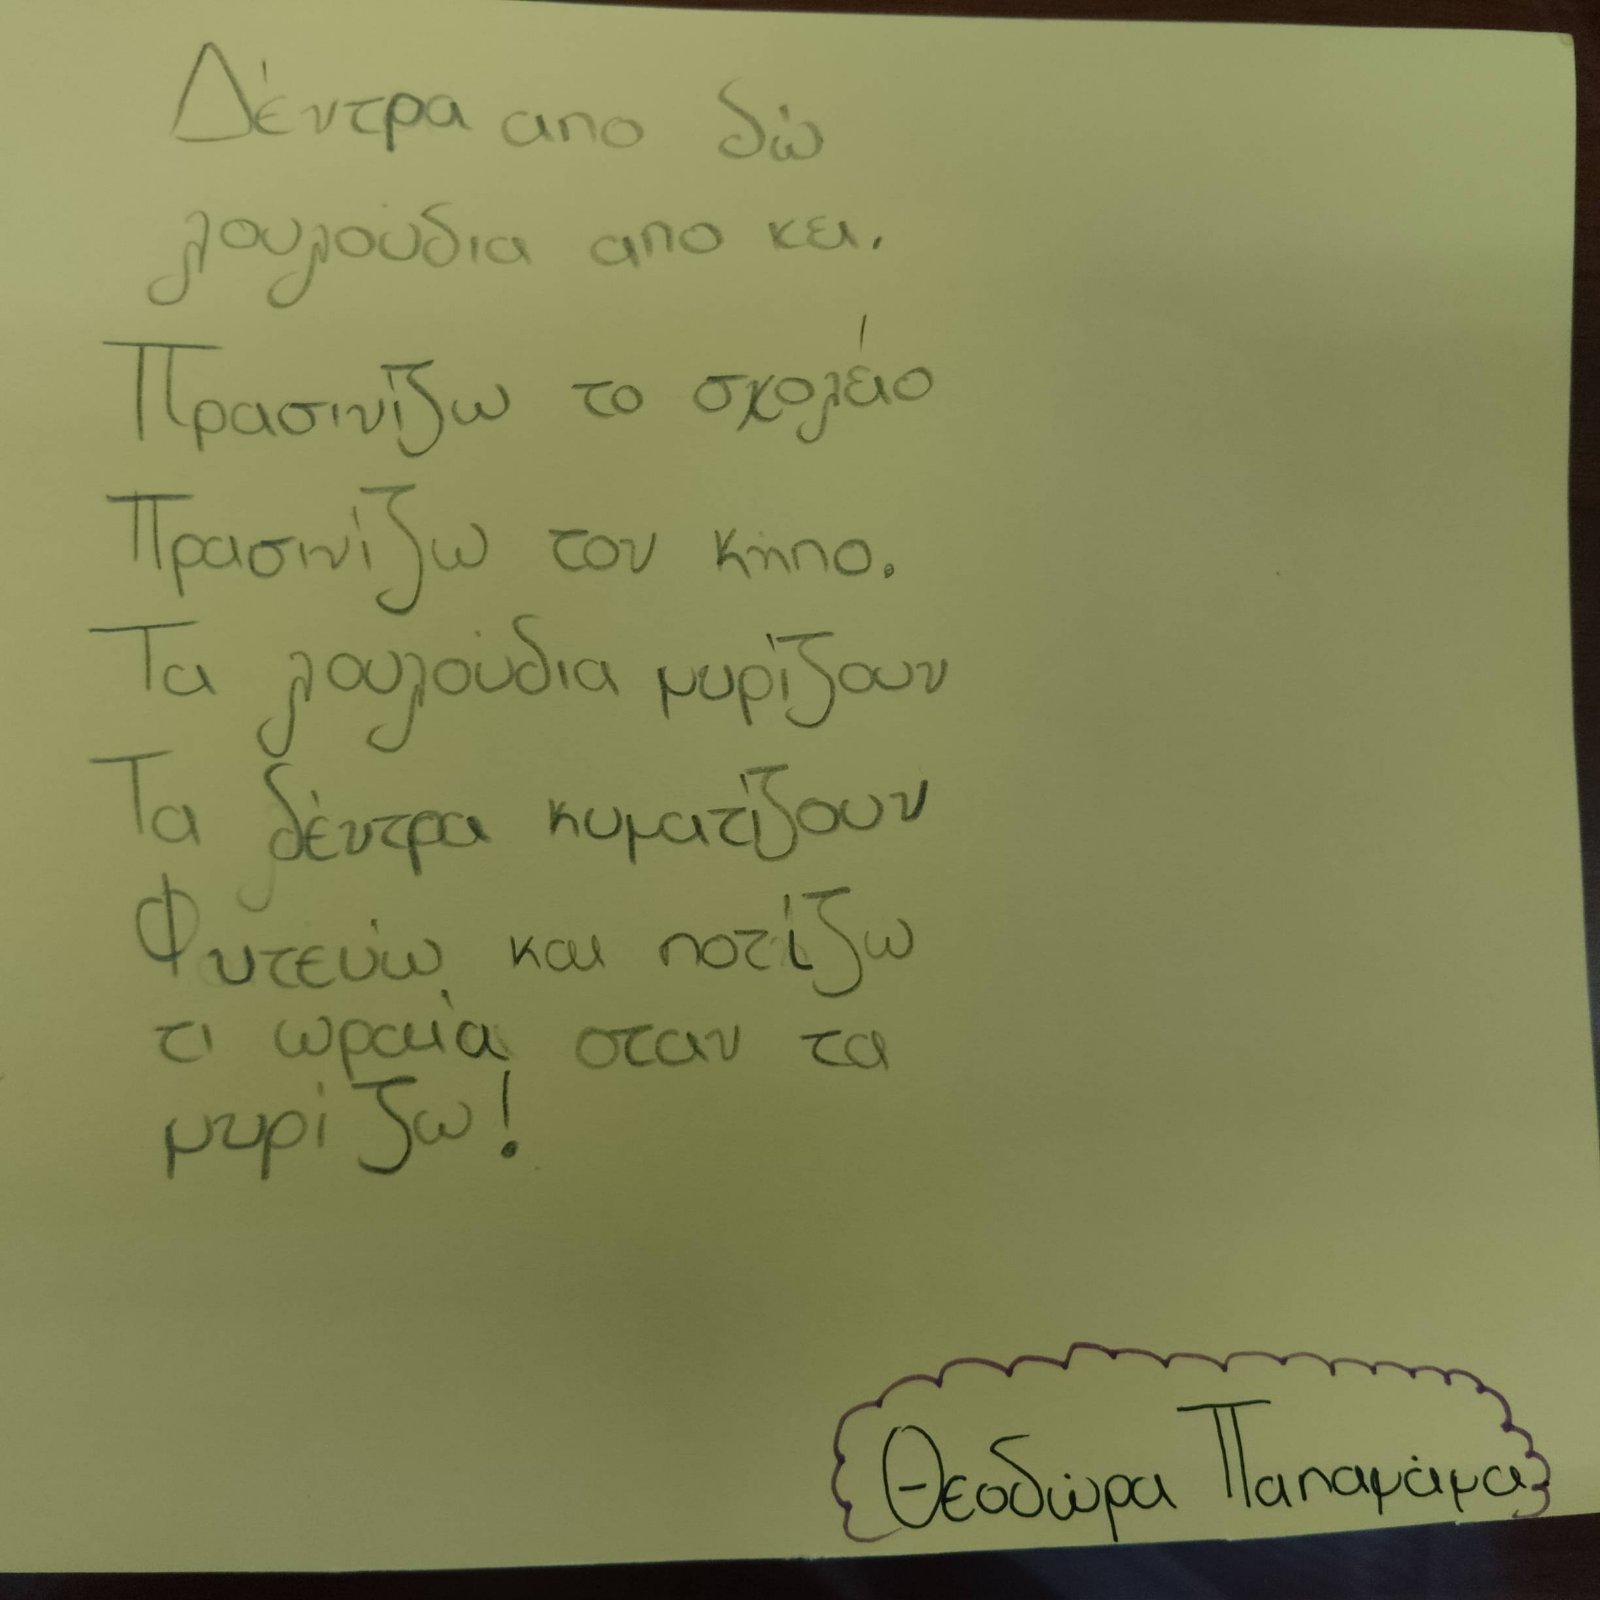 Δέντρα απο δώ
λουλούδια απο κει.
Πρασινίζω το σχολείο
Πρασινίζω τον κήπο.
Τα λουλούδια μυρίζουν
Τα δέντρα κυματίζουν
Φυτεύω και ποτίζω
τι ωραία οταν τα
μυρίζω!
Θεοδώρα Παπαμάμα